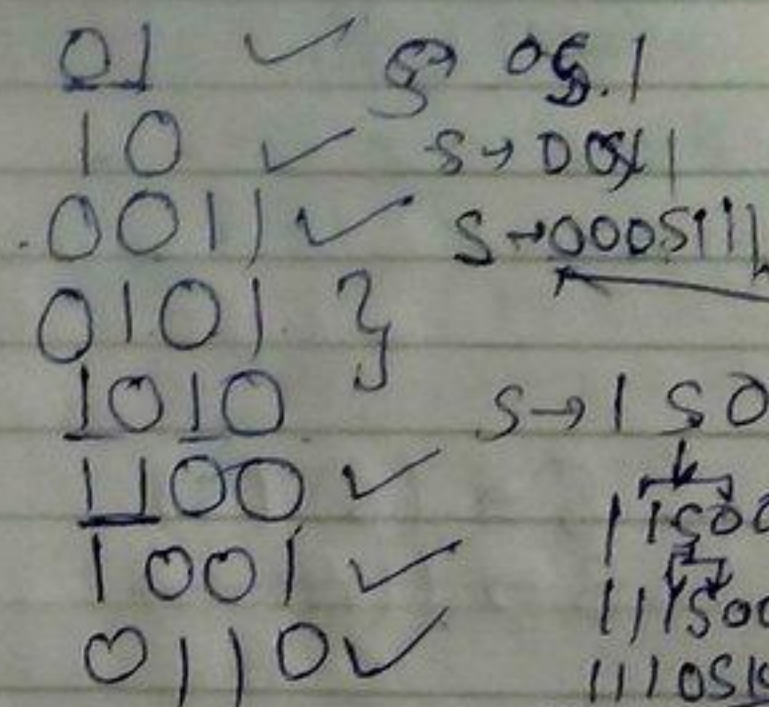 01 ✓ S→ 0S.1
10 ✓ S→ 00S11
.0011 ✓ S→000S111
0101 }
1010 S→ 1 S 0
1100 ✓ 11S00
1001 ✓ 111S00
0110 ✓ 1110S1